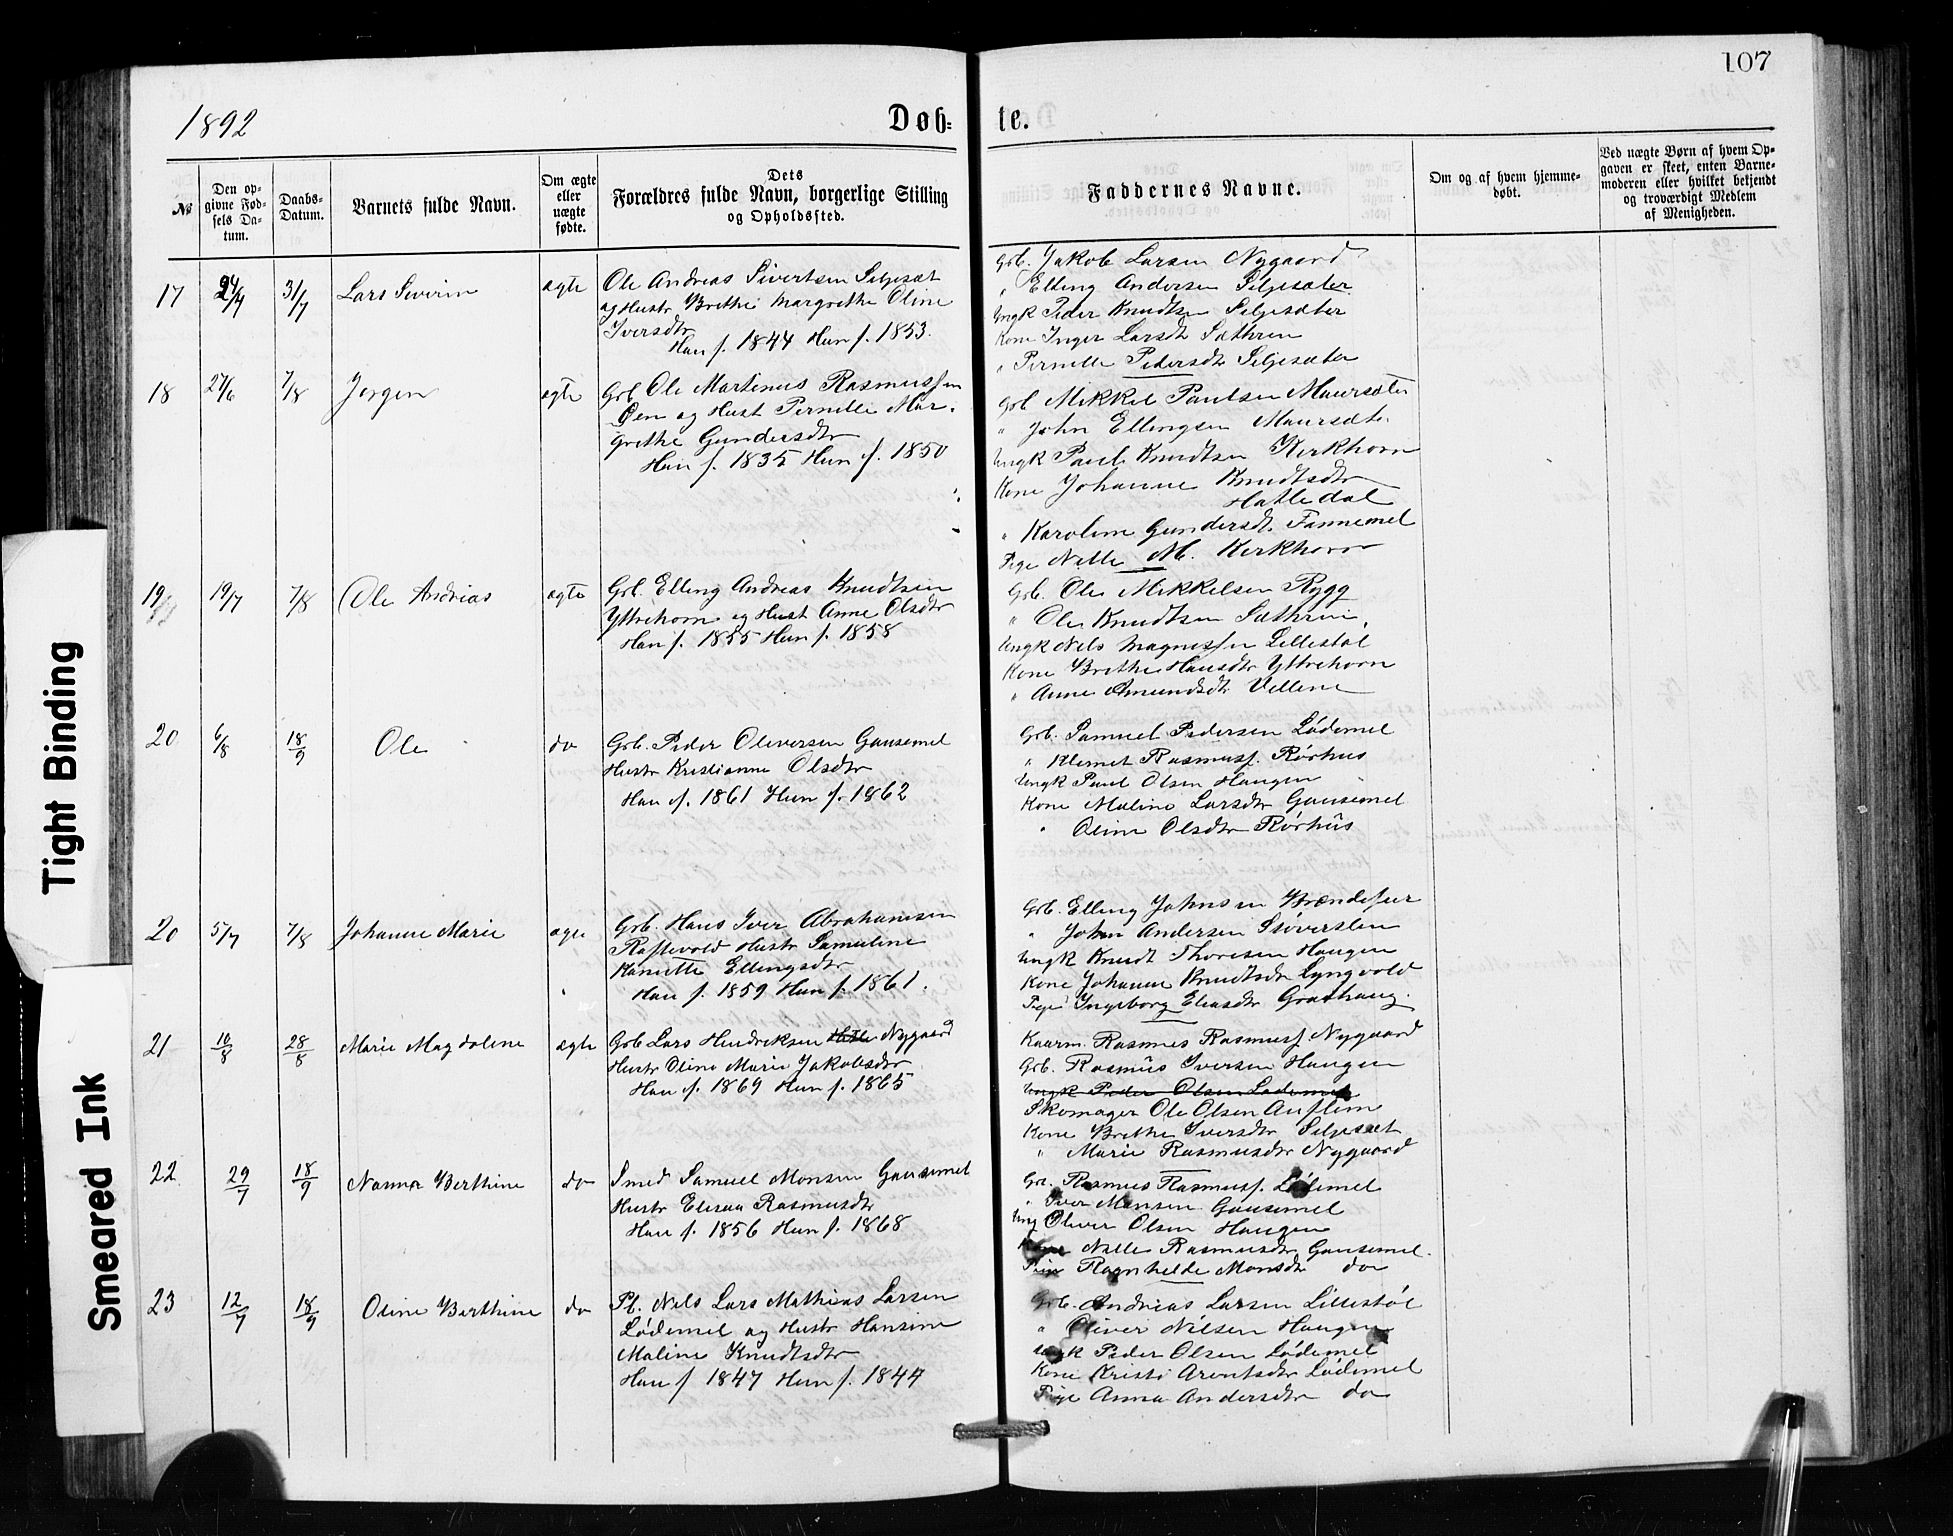 107
1892
Døb-
te.
№
Den opgivne Fødsels Datum.
Daabs-Datum.
Barnets fulde Navn.
Om ægte eller uægte fødte.
Dets Forældres fulde Navn, borgerlige Stilling og Opholdssted.
Faddernes Navne.
Om og af hvem hjemmedøbt.
Ved uægte Børn af hvem Opgaven er skeet, enten Barnemoderen eller hvilket bekjendt og troværdigt Medlem af Menigheden.
17
31/7
Lars Severin
ægte
Ole Andreas Sivertsen Seljesæt
og Hustr Brethe Margrethe Oline
Iversdtr
Han f. 1844 Hun f. 1853.
Grb. Jakob Larsen Nygaard
" Elling Andersen Seljesæter
Ungk Peder Knudtsen Seljesæter
Kone Inger Larsdtr Sæthren
" Pernille Pedersdtr Seljesæter
18
27/6
7/8
Jørgen
ægte
Grb Ole Martinus Rasmussen
Øen og Hust Pernille Mar-
grethe Gundersdtr
Han f. 1835 Hun f. 1850
Grb Mikkel Paulsen Maursæter
" John Ellingsen Maursæter
Ungk Paul Knudtsen Kirkhorn
Kone Johanne Knudtsdtr
Hatledal
" Karoline Gundersdtr Fannemel
Pige Nille M. Kirkhorn
19
19/7
7/8
Ole Andrias
ægte
Grb. Elling Andreas Knudtsen
Yttrehorn og Hust Anne Olsdtr
Han f. 1855 Hun f. 1858
Grb. Ole Mikkelsen Rygg
" Ole Knudtsen Sæthren
Ungk Nils Magnussen Lillestøl
Kone Brethe Hansdtr Yttrehorn
" Anne Amundsdtr Vellene
20
6/8
18/9
Ole
do
Grb. Peder Oliversen Gausemel
Hustr Kristianne Olsdtr
Han f. 1861 Hun f. 1862
Grb. Samuel Pedersen Lødemel
" Klemet Rasmuss. Rørhus
Ungk Paul Olsen Haugen
Kone Maline Larsdtr Gausemel
" Oline Olsdtr Rørhus
20
5/7
7/8
Johanne Marie
ægte
Grb. Hans Iver Abrahamsen
Raftevold Hustr Samuline
Hansette Ellingsdtr
Han f. 1859 Hun f. 1861.
Grb. Elling Johnsen
" John Andersen
Ungk Knudt Thoresen Haugen
Kone Johanne Knudtsdtr Lyngvold
Pige Ingeborg Eliasdtr Grodhaug.
21
10/8
28/8
Marie Magdalene
ægte
Grb Lars Hendriksen Nygaard
Hustr Oline Marie Jakobsdtr
Han f. 1869 Hun f. 1865
Kaarm. Rasmus Rasmuss Nygaard
Grb. Rasmus Iversen Haugen
Ungk Peder Olsen Lødemel
Skomager Ole Olsen Auflem
Kone Brethe Iversdtr Seljesæt
" Marie Rasmusdtr Nygaard
22
29/7
18/9
Nanna Berthine
do
Smed Samuel Monsen Gausemel
Hustr Elisaa Rasmusdtr
Han f. 1856 Hun f. 1868
Grb. Rasmus Rasmuss. Lødemel
" Iver Monsen Gausemel
Ung Oliver Olsen Haugen
Kone Nille Rasmusdtr Gausemel.
Pige Ragnhilde Monsdtr do
23
12/7
18/9
Oline Berthine
do
Pl. Nils Lars Mathias Larsen
Lødemel og Hustr Hansine
Maline Knudtsdtr
Han f 1847 Hun f. 1844
Grb. Andreas Larsen Lillestøl
" Oliver Nilsen Haugen
Ungk Peder Olsen Lødemel
Kone Kristi Arentsdtr Lødemel
Pige Anna Andersdtr do
Tight Binding
Smeared Ink